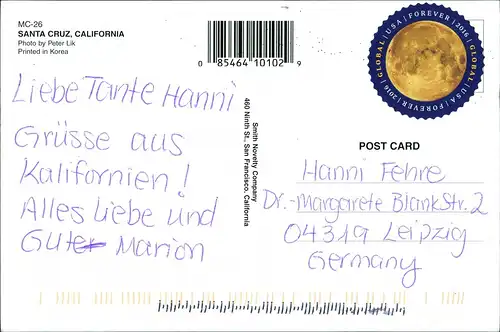 MC-26
SANTA CRUZ, CALIFORNIA
Photo by Peter Lik
Printed in Korea
0 85464 10102 9
GLOBAL USA FOREVER 2016 GLOBAL USA FOREVER 2016
Liebe Tante Hanni
Grüsse aus
Kalifornien!
Alles Liebe und
Gute Marion
Smith Novelty Company
460 Ninth St., San Francisco, California
POST CARD
Hanni Fehre
Dr.-Margarete Blank Str. 2
04319 Leipzig
Germany